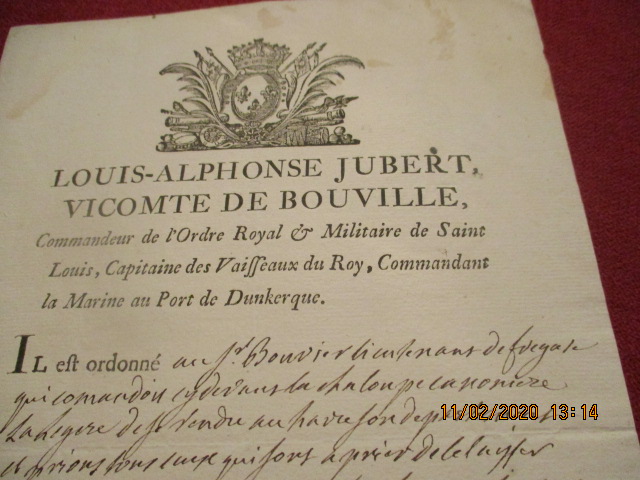 LOUIS-ALPHONSE JUBERT,
VICOMTE DE BOUVILLE,
Commandeur de l'Ordre Royal & Militaire de Saint
Louis, Capitaine des Vaiſſeaux du Roy, Commandant
la Marine au Port de Dunkerque.
IL eſt ordonné au Sr. Bouvier lieutenant de fregate
qui comandoit cydevant la chaloupe canoniere
La legere de se rendre au havre son de
et prions tous ceux qui sont a prier de le laisser
11/02/2020 13:14